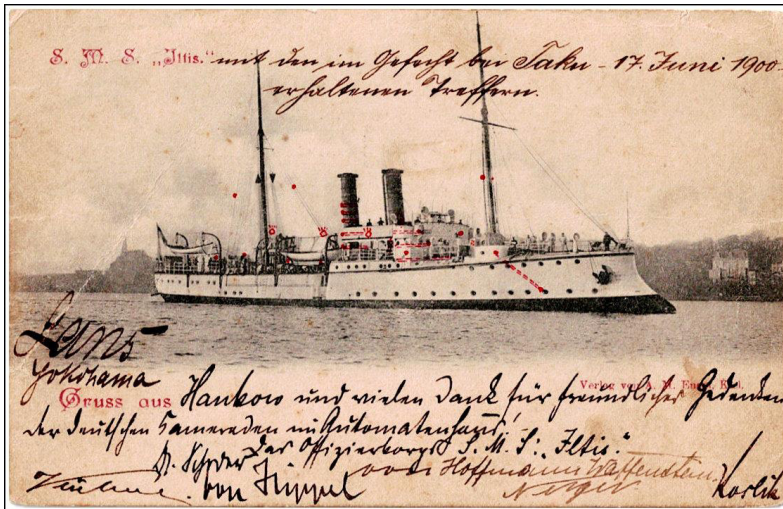 S. M. S. „Iltis.“ mit den im Gefecht bei Taku - 17. Juni 1900 -
erhaltenen Treffern.
Lans
Yokohama
Verlag von A. M.
Gruss aus Hankow und vielen Dank für freundliches Gedenken
der deutschen Kameraden im Automatenhaus!
Das Offizierkorps S. M. S. „Iltis.“
von Hoffmann Waldenstein
von Hippel Nerger